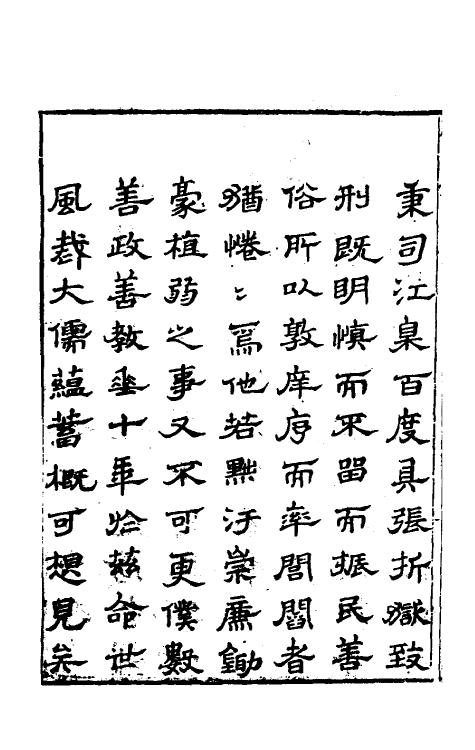 秉司江臬百度具張折獄致
刑既明慎而不留而振民善
俗所以敦庠序而率閭閻者
猶惓〻焉他若黜汙崇廉鋤
豪植弱之事又不可更僕數
善政善教垂十年於茲命世
風裁大儒蘊蓄概可想見矣